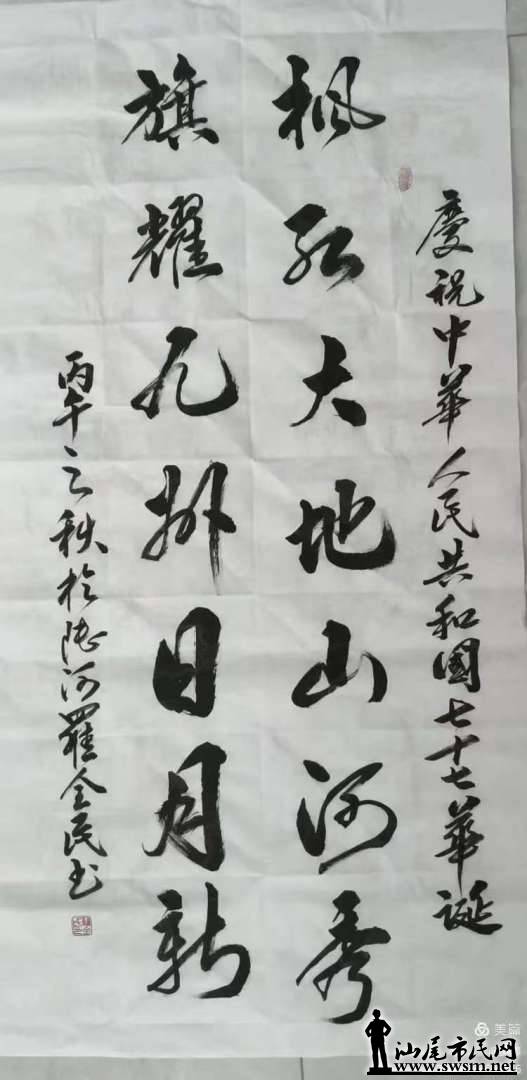 慶祝中華人民共和國七十七華诞
枫红大地山河秀
旗耀九州日月新
丙午之秋於陸河羅全民书
美篇
汕尾市民网
www.swsm.net